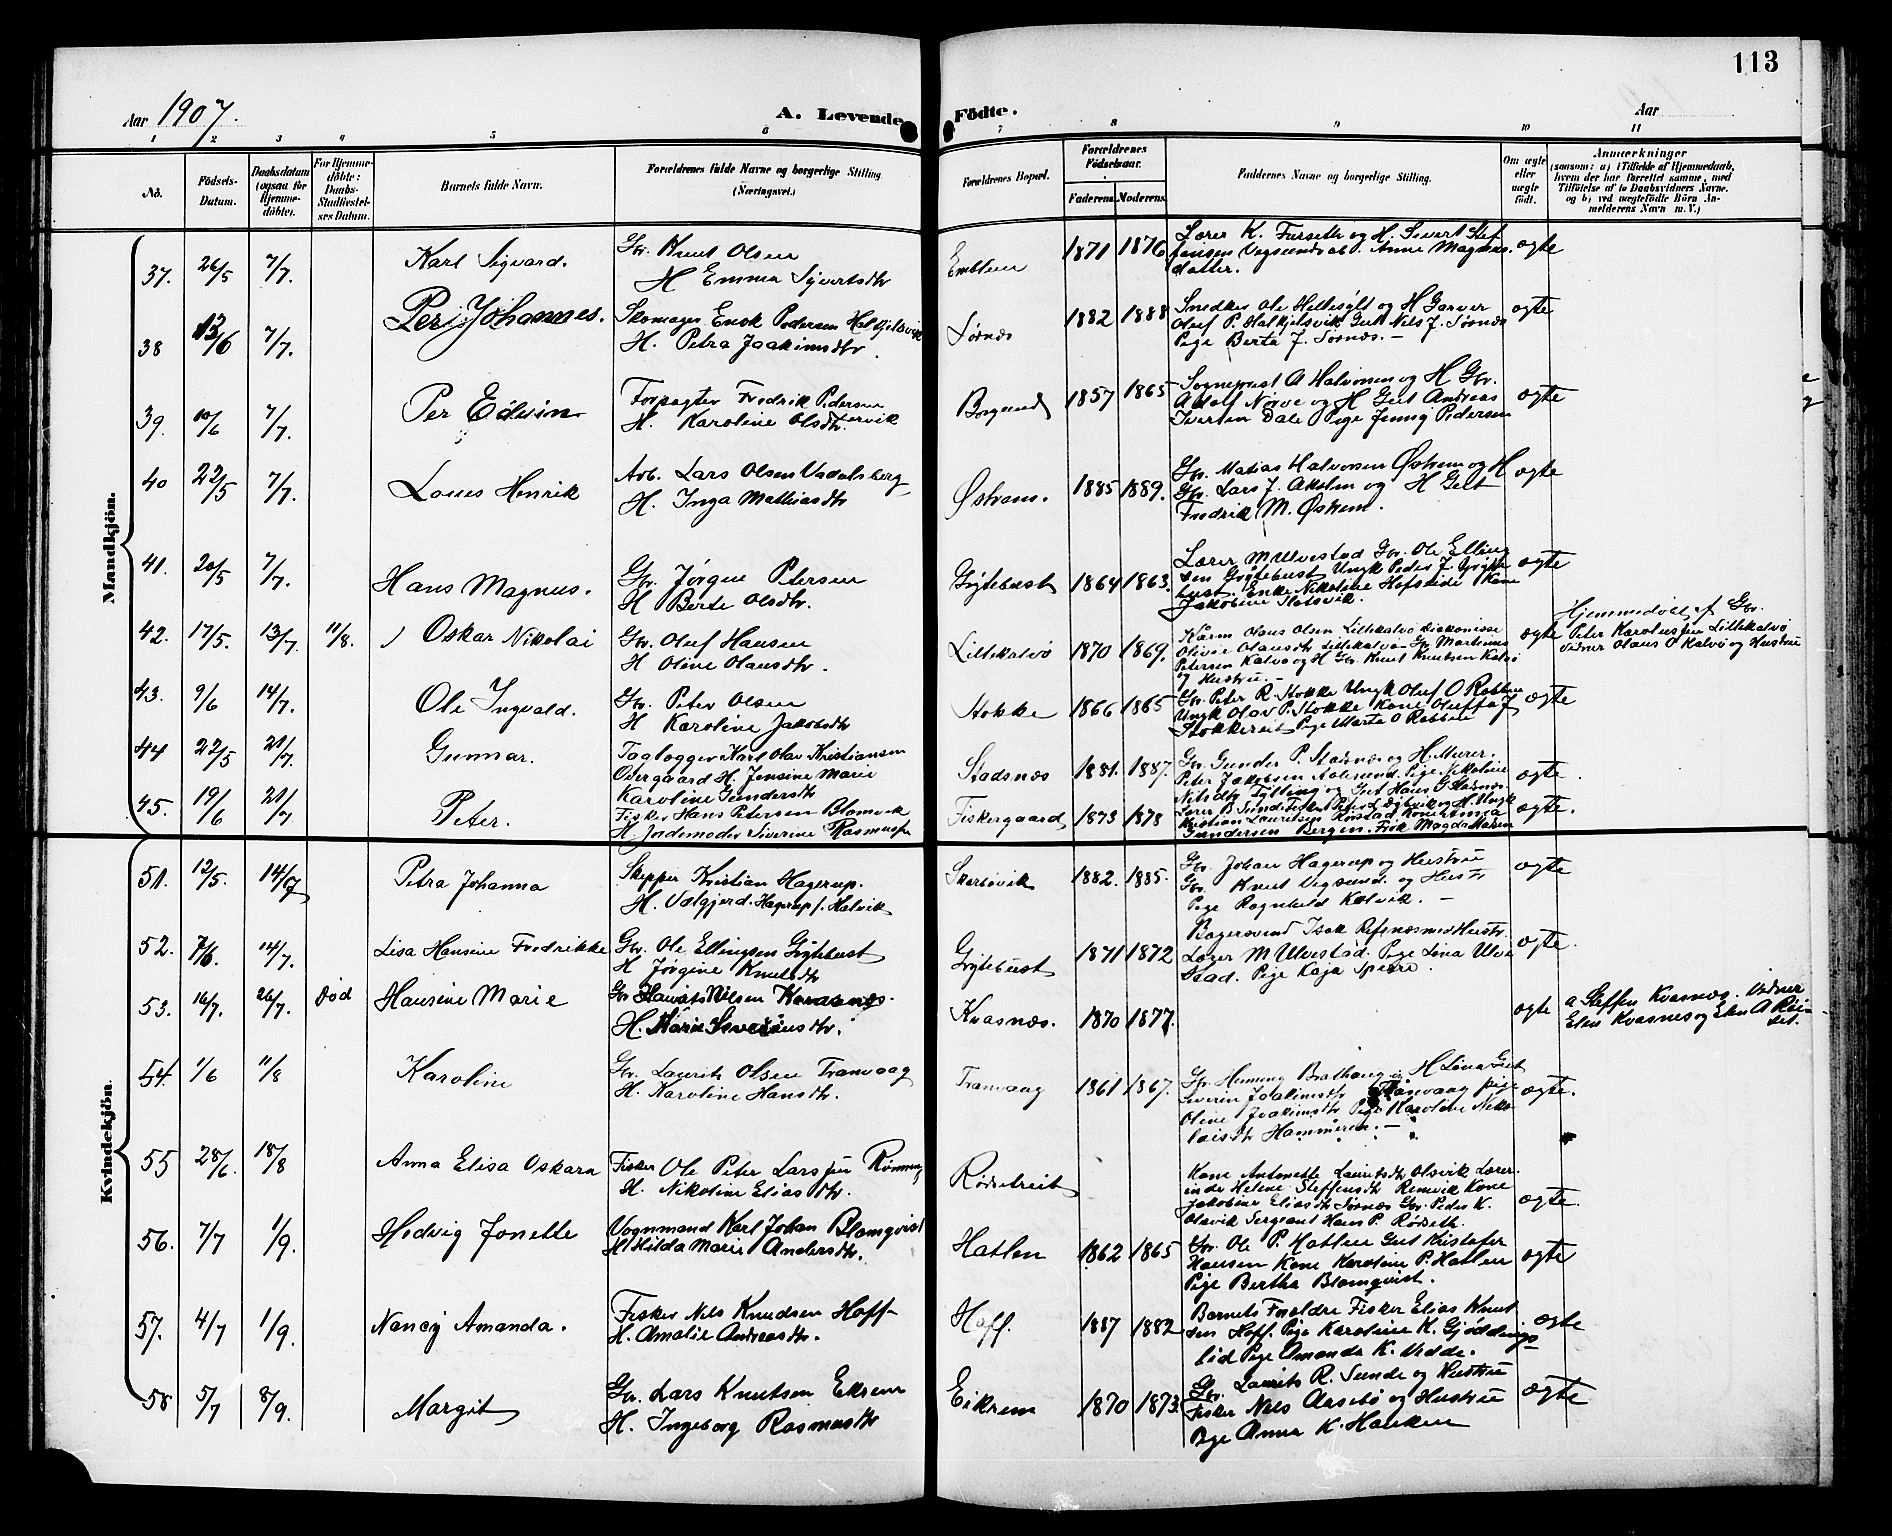 113
Aar 1907.
A. Levende Födte.
Aar
1 2 3 4 5 6 7 8 9 10 11
No.
Födsels-
Datum.
Daabsdatum
(ogsaa for
Hjemme-
döbte).
For Hjemme-
döbte:
Daabs-
Stadfæstel-
ses Datum.
Barnets fulde Navn.
Forældrenes fulde Navne og borgerlige Stilling
(Næringsvei.)
Forældrenes Bopæl.
Forældrenes
Födselsaar.
Faderens. Moderens.
Faddernes Navne og borgerlige Stilling.
Om ægte
eller
uægte
født.
Anmærkninger
(saasom: a) i Tilfælde af Hjemmedaab,
hvem der har forrettet samme, med
Tilföielse af to Daabsvidners Navne.
og b) ved uægtefödte Börn An-
melderens Navn m. V.)
Mandkjön.
37. 26/5 7/7. Karl Sigvard.
Gbr. Knut Olsen
H Emma Sivertsdtr
Emblem 1871 1876
Lærer K. Furseth og H. Sivert Stef
fensen Vegsund Anne Magnus.
datter.
ægte
38 13/6 7/7. Per Johannes.
Skomager Enok Pedersen Halkjelsvik
H. Petra Joakimsdtr.
Sørnes 1882 1888
Snedker Ole Hellesylt og H Garver
Oluf P. Halkjelsvik Gut Nils J. Sørnes
Pige Berta J. Sørnes. —
ægte
39. 10/6 7/7. Per Edvin
Forpagter Fredrik Pedersen
Lervik
H. Karoline Olsdtr.
Borgund 1857 1865
Sogneprest A Halvorsen og H Gbr.
Adolf Nørve og H Gut Andreas
Iversen Dale Pige Jenny Pedersen
ægte
40 22/5 7/7. Louis Henrik
Arb. Lars Olsen Vadalsberg
H. Inga Mathiasdtr
Østrem. 1885 1889.
Gbr. Matias Halvorsen Østrem og H
Gbr. Lars J. Akslen og H Gut
Fredrik M. Østrem.
ægte
41. 20/5 7/7. Hans Magnus.
Gbr. Jørgen Petersen
H Berte Olsdtr.
Grytebust 1864 1863.
Lærer M Ulvestad Gbr. Ole Elling
sen Grytebust Ungk Peder J. Gryte
bust. Enke Nikoline Hofseide Kone
Jakobine Flatsvik.
ægte
42. 17/5. 13/7. 11/8. Oskar Nikolai
Gbr. Oluf Hansen
H Oline Olausdtr.
Lillekalvø 1870 1869.
Kårm Olaus Olsen Lillekalvø Diakonisse
Olivie Olausdtr Lillekalvø Gbr Martinus
Petersen Kalvø og H Gbr. Knut Knutsen Kalvø
og Hustru. —
ægte
Hjemmedøbt af Gbr.
Peter Karolussen Lillekalvø
Vidner Olaus O Kalvø og Hustru
43. 9/6 14/7. Ole Ingvald.
Gbr. Peter Olsen
H Karoline Jakobsdtr
Stokke 1866 1865
Gbr. Peter R. Stokke Ungk Oluf O Rabben
Ungk Olav P. Stokke Kone Oluffa J
Stokkereit Pige Marta O Rabben
ægte
44 22/5 21/7. Gunnar.
Taglægger Karl Olav Kristiansen
Overgaard H. Jensine Marie
Karoline Gundersdtr
Stadsnæs 1881. 1887.
Gbr. Gunder P. Stadsnæs og H. Murer.
Peter Jakobsen Aalesund. Pige Nikoline
Nilsdtr Tylling og Gut Hans G Stadsnæs
ægte
45. 19/6 21/7 Peter.
Fisker Hans Petersen Blomvik
H. Jordemoder Severine Rasmussen
Fiskergaard 1873 1878
Kristian Lauritsen
Gundersen Bergen. Frøk Magda
ægte.
Kvindekjön.
51. 12/5. 14/7 Petra Johanna
Skipper Kristian Hagerup.
H. Valgjerd Hagerup f. Kalvik
Skarbøvik 1882. 1885.
Gbr. Johan Hagerup og Hustru
Gbr. Knut Vegsund. og Hustr
Pige Ragnhild Kalvik. —
ægte
52. 7/6. 14/7. Lisa Hansine Fredrikke
Gbr. Ole Ellingsen Grytebust
H Jørgine Knutsdtr
Grytebust 1871 1872
Bagersvend Isak Refsnæs med Hustr.
Lærer M Ulvestad. Pige Lina Ulve
stad. Pige Kaja Sperre.
ægte.
53. 16/7. 26/7. Død Hansine Marie
Gbr Nilsen Kvasnæs.
H. Marie
Kvasnæs. 1870 1877.
ægte
a Steffen Kvasnæs. Vidner
Elen Kvasnes og Elen A Røi-
set.
54. 1/6 11/8 Karoline
Gbr. Laurits Olsen Tranvaag
H. Karoline Hansdtr.
Tranvaag 1861 1867.
Gbr Henning Brathaug og H Lina Gut
Severin Joakimsdtr Tranvaag pige
Oline Joakimsdtr Pige Karoline Niko
laisdtr Hammeren. —
ægte.
55 28/6. 18/8 Anna Elisa Oskara
Fisker Ole Peter Larssen Rønning
H. Nikoline Eliasdtr.
Rødsetreit
Kone Antonette Lauritsdtr Olsvik Lærer.
inde Helene Steffensdtr Remvik Kone
Jakobine Eliasdtr Sørnes Gbr. Peder K.
Olsvik Sergeant Hans P. Rødseth.
ægte.
56. 7/7 1/9. Hedvig Jonette
Vognmand Karl Johan Blomqvist
H Hilda Marie Andersdtr.
Hatlen 1862 1865
Gbr. Ole P. Hatlen Gut Kristofer
Hansen Kone Karoline P. Hatlen
Pige Bertha Blomqvist.
ægte
57. 4/7 1/9. Nancy Amanda.
Fisker Nils Knudsen Hoff
H. Amalie Andreasdtr.
Hoff. 1887 1882
Barnets Foreldre Fisker Elias Knut
sen Hoff. Pige Karoline K. Gjødings-
lid Pige Amanda K. Vedde.
ægte
58 5/7 8/9. Margit
Gbr. Lars Knutsen Eikrem
H. Ingeborg Rasmusdtr
Eikrem 1870 1873.
Gbr. Laurits R. Sunde og Hustru
Fisker Nils Aarsebø og Hustru
Pige Anna K. Hauken
ægte